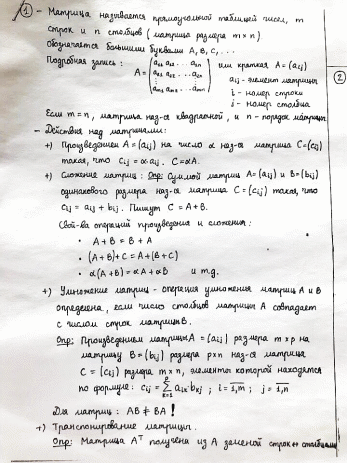 ① - Матрица называется прямоугольной таблицей чисел, m
строк и n столбцов (матрица размера m×n)
Обозначается большими буквами A, B, C, ...
Подробная запись: A = (a₁₁ a₁₂ ... a₁ₙ
a₂₁ a₂₂ ... a₂ₙ
⋮
aₘ₁ aₘ₂ ... aₘₙ) или краткая A = (aᵢⱼ)
aᵢⱼ - элемент матрицы
i - номер строки
j - номер столбца
②
Если m = n, матрица наз-ся квадратной, и n - порядок матрицы
- Действия над матрицами:
+) Произведением A = (aᵢⱼ) на число α наз-ся матрица C = (cᵢⱼ)
такая, что cᵢⱼ = αaᵢⱼ. C = αA.
+) Сложение матриц: Опр: Суммой матриц A = (aᵢⱼ) и B = (bᵢⱼ)
одинакового размера наз-ся матрица C = (cᵢⱼ) такая, что
cᵢⱼ = aᵢⱼ + bᵢⱼ. Пишут C = A + B.
Свой-ва операций произведения и сложения:
• A + B = B + A
• (A + B) + C = A + (B + C)
• α(A + B) = αA + αB и т.д.
+) Умножение матриц - операция умножения матриц A и B
определена, если число столбцов матрицы A совпадает
с числом строк матрицы B.
Опр: Произведением матрицы A = (aᵢⱼ) размера m×p на
матрицу B = (bᵢⱼ) размера p×n наз-ся матрица
C = (cᵢⱼ) размера m×n, элементы которой находятся
по формуле: cᵢⱼ = Σₖ₌₁ᵖ aᵢₖ·bₖⱼ; i = 1,m; j = 1,n
Для матриц: AB ≠ BA !
+) Транспонирование матрицы.
Опр: Матрица Aᵀ получена из A заменой строк ↔ столбцами